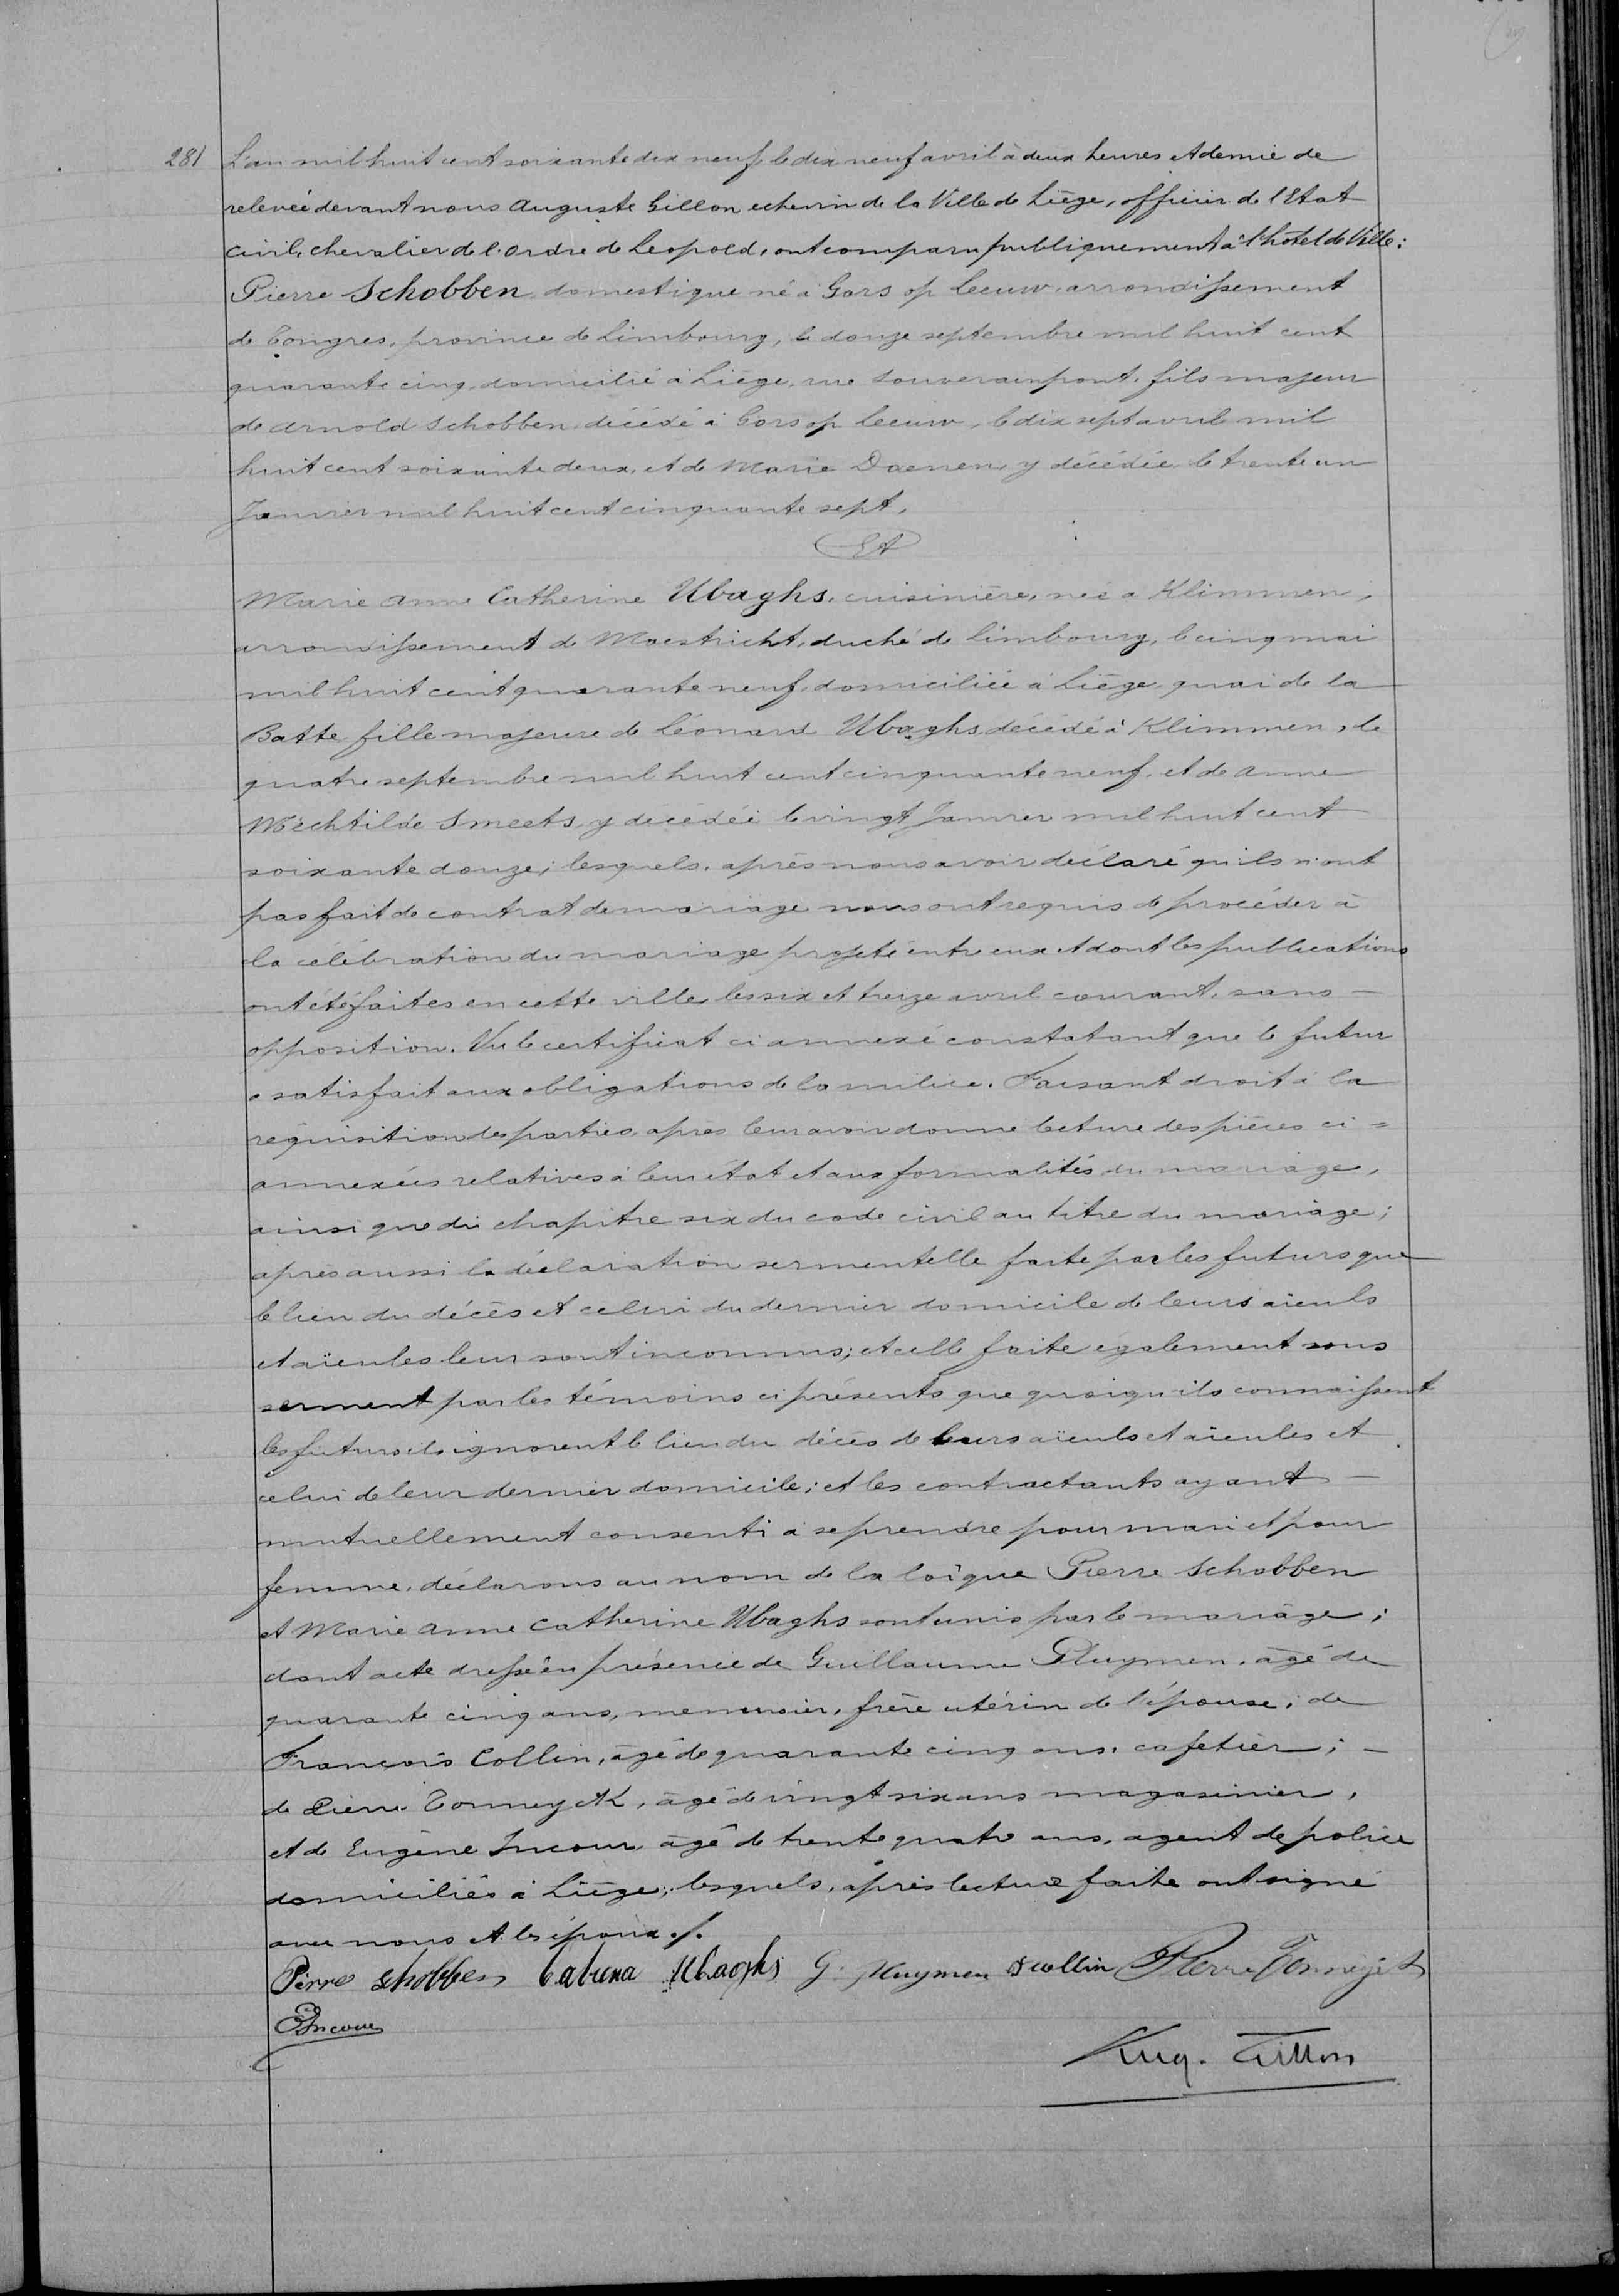 281 L'an mil huit cent soixante dix neuf, le dix neuf avril à deux heures et demie de
relevée devant nous Auguste Gillon echevin de la Ville de Liège, officier de l'Etat
civil, chevalier de l'ordre de Leopold, ont comparu publiquement à l'hôtel de Ville:
Pierre Schobben, domestique né à Gors op Leeuw, arrondissement
de Tongres, province de Limbourg, le douze septembre mil huit cent
quarante cinq, domicilié à Liège, rue Souverainpont, fils majeur
de Arnold Schobben, décédé à Gors op Leeuw, le dix sept avril mil
huit cent soixante deux, et de Marie Daenen, y décédée le trente un
Janvier mil huit cent cinquante sept,
Et
Marie Anne Catherine Ubaghs, cuisinière, née à Klimmen,
arrondissement de Maestricht, duché de Limbourg, le cinq mai
mil huit cent quarante neuf, domiciliée à Liège, quai de la
Batte, fille majeure de Léonard Ubaghs, décédé à Klimmen, le
quatre septembre mil huit cent cinquante neuf, et de Anne
Mechtilde Smeets, y décédée le vingt Janvier mil huit cent
soixante douze; lesquels, après nous avoir déclaré qu'ils n'ont
pas fait de contrat de mariage nous ont requis de procéder à
la célébration du mariage projeté entre eux et dont les publications
ont été faites en cette ville, les six et treize avril courant, sans —
opposition. Vu le certificat ci annexé constatant que le futur
a satisfait aux obligations de la milice. Faisant droit à la
réquisition des parties, après leur avoir donné lecture des pièces ci =
annexées relatives à leur état et aux formalités du mariage,
ainsi que du chapitre six du code civil au titre du mariage;
après aussi la déclaration sermentelle faite par les futurs que
le lieu du décès et celui du dernier domicile de leurs aïeuls
et aïeules leur sont inconnus; et celle faite également sous
serment par les témoins ci présents que quoiqu'ils connaissent
les futurs ils ignorent le lieu du décès de leurs aïeuls et aïeules et
celui de leur dernier domicile; et les contractants ayant —
mutuellement consenti à se prendre pour mari et pour
femme, déclarons au nom de la loi que Pierre Schobben
et Marie Anne Catherine Ubaghs sont unis par le mariage;
dont acte dressé en présence de Guillaume Pluymen, âgé de
quarante cinq ans, menuisier, frère utérin de l'épouse; de
François Collin, âgé de quarante cinq ans, cafetier; —
de Pierre Tonneyck, âgé de vingt six ans magasinier,
et de Eugène Incour, âgé de trente quatre ans, agent de police
domiciliés à Liège; lesquels, après lecture faite ont signé
avec nous et les époux ./.
Pierre Schobben Ubaghs G. Pluymen F Collin Pierre Tonneyck
E Incour
Aug. Gillon